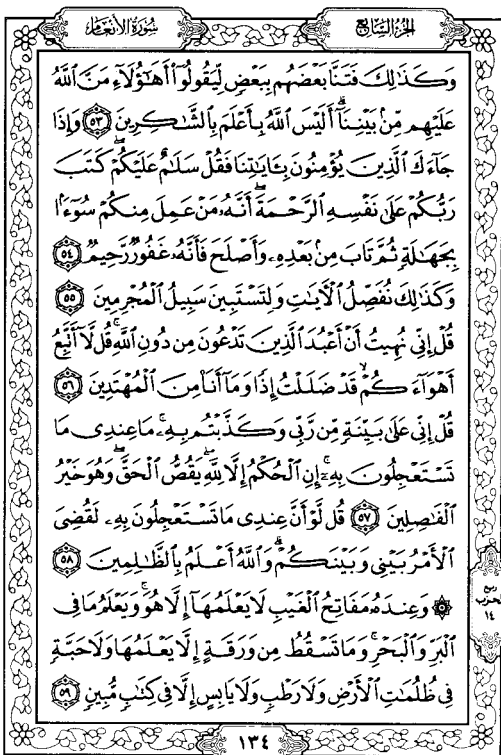 سُورَةُ الأَنْعَامِ
الجُزْءُ السَّابِعُ
وَكَذَٰلِكَ فَتَنَّا بَعْضَهُم بِبَعْضٍ لِّيَقُولُوٓا۟ أَهَٰٓؤُلَآءِ مَنَّ ٱللَّهُ
عَلَيْهِم مِّنۢ بَيْنِنَآ ۗ أَلَيْسَ ٱللَّهُ بِأَعْلَمَ بِٱلشَّٰكِرِينَ ٥٣ وَإِذَا
جَآءَكَ ٱلَّذِينَ يُؤْمِنُونَ بِـَٔايَٰتِنَا فَقُلْ سَلَٰمٌ عَلَيْكُمْ ۖ كَتَبَ
رَبُّكُمْ عَلَىٰ نَفْسِهِ ٱلرَّحْمَةَ ۖ أَنَّهُۥ مَنْ عَمِلَ مِنكُمْ سُوٓءًۢا
بِجَهَٰلَةٍ ثُمَّ تَابَ مِنۢ بَعْدِهِۦ وَأَصْلَحَ فَأَنَّهُۥ غَفُورٌ رَّحِيمٌ ٥٤
وَكَذَٰلِكَ نُفَصِّلُ ٱلْـَٔايَٰتِ وَلِتَسْتَبِينَ سَبِيلُ ٱلْمُجْرِمِينَ ٥٥
قُلْ إِنِّى نُهِيتُ أَنْ أَعْبُدَ ٱلَّذِينَ تَدْعُونَ مِن دُونِ ٱللَّهِ ۚ قُل لَّآ أَتَّبِعُ
أَهْوَآءَكُمْ ۙ قَدْ ضَلَلْتُ إِذًا وَمَآ أَنَا۠ مِنَ ٱلْمُهْتَدِينَ ٥٦
قُلْ إِنِّى عَلَىٰ بَيِّنَةٍ مِّن رَّبِّى وَكَذَّبْتُم بِهِۦ ۚ مَا عِندِى مَا
تَسْتَعْجِلُونَ بِهِۦٓ ۚ إِنِ ٱلْحُكْمُ إِلَّا لِلَّهِ ۖ يَقُصُّ ٱلْحَقَّ ۖ وَهُوَ خَيْرُ
ٱلْفَٰصِلِينَ ٥٧ قُل لَّوْ أَنَّ عِندِى مَا تَسْتَعْجِلُونَ بِهِۦ لَقُضِىَ
ٱلْأَمْرُ بَيْنِى وَبَيْنَكُمْ ۗ وَٱللَّهُ أَعْلَمُ بِٱلظَّٰلِمِينَ ٥٨
۞ وَعِندَهُۥ مَفَاتِحُ ٱلْغَيْبِ لَا يَعْلَمُهَآ إِلَّا هُوَ ۚ وَيَعْلَمُ مَا فِى
ٱلْبَرِّ وَٱلْبَحْرِ ۚ وَمَا تَسْقُطُ مِن وَرَقَةٍ إِلَّا يَعْلَمُهَا وَلَا حَبَّةٍ
فِى ظُلُمَٰتِ ٱلْأَرْضِ وَلَا رَطْبٍ وَلَا يَابِسٍ إِلَّا فِى كِتَٰبٍ مُّبِينٍ ٥٩
ربع
حزب
١٤
١٣٤